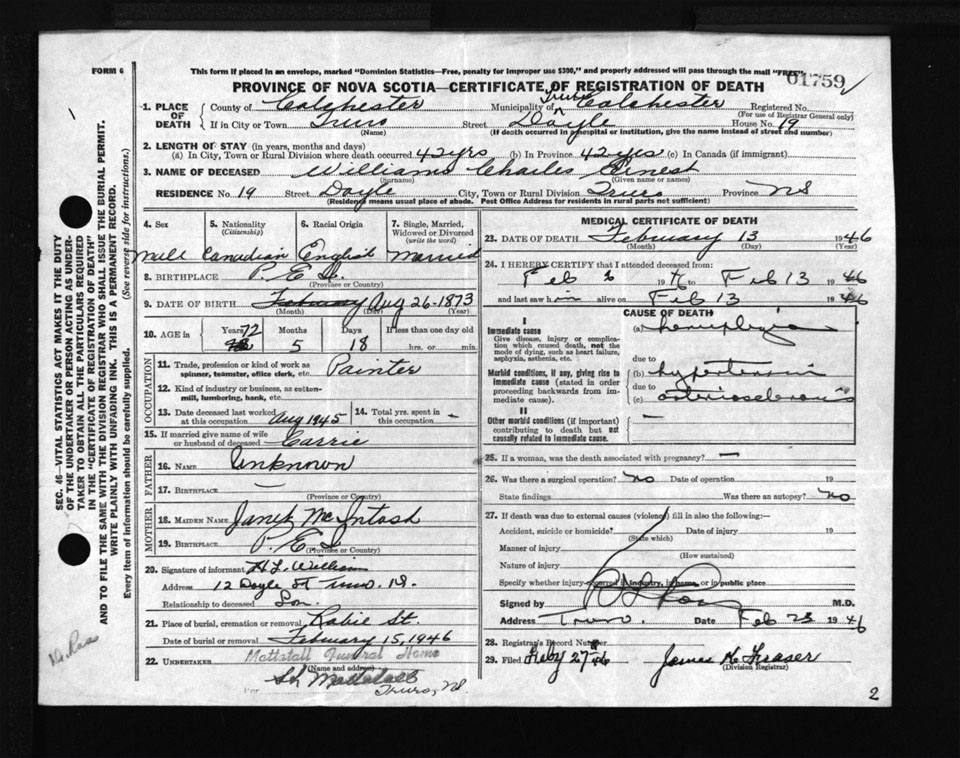 FORM 6
This form if placed in an envelope, marked "Dominion Statistics—Free, penalty for improper use $300," and properly addressed will pass through the mail "FREE"
01759
PROVINCE OF NOVA SCOTIA—CERTIFICATE OF REGISTRATION OF DEATH
1. PLACE OF DEATH County of Colchester Municipality of Truro Colchester Registered No.
(For use of Registrar General only)
If in City or Town Truro Street Doyle House No. 19
(Name) (If death occurred in a hospital or institution, give the name instead of street and number)
2. LENGTH OF STAY (in years, months and days)
(a) In City, Town or Rural Division where death occurred 42 yrs (b) In Province 42 yrs (c) In Canada (if immigrant)
3. NAME OF DECEASED Williams Charles Ernest
(Surname) (Given name or names)
RESIDENCE No. 19 Street Doyle City, Town or Rural Division Truro Province NS
(Residence means usual place of abode. Post Office Address for residents in rural parts not sufficient)
4. Sex 5. Nationality (Citizenship) 6. Racial Origin 7. Single, Married, Widowed or Divorced (write the word)
Canadian English Married
8. BIRTHPLACE P.E.I.
(Province or Country)
9. DATE OF BIRTH February Aug 26-1873
(Month) (Day)
10. AGE in Years 72 Months 5 Days 18 If less than one day old hrs. or min.
OCCUPATION
11. Trade, profession or kind of work as spinner, teamster, office clerk, etc. Painter
12. Kind of industry or business, as cotton-mill, lumbering, bank, etc.
13. Date deceased last worked at this occupation Aug 1945 14. Total yrs. spent in this occupation —
15. If married give name of wife or husband of deceased Carrie
FATHER
16. NAME Unknown
17. BIRTHPLACE —
(Province or Country)
MOTHER
18. MAIDEN NAME Janet McIntosh
19. BIRTHPLACE P.E.I
(Province or Country)
20. Signature of informant H L William
Address 12 Doyle St Truro NS.
Relationship to deceased Son.
21. Place of burial, cremation or removal Robie St.
Date of burial or removal February 15, 1946
22. UNDERTAKER Mattatall Funeral Home
(Name and address)
Mattatall
Truro, NS.
MEDICAL CERTIFICATE OF DEATH
23. DATE OF DEATH February 13 1946
(Month) (Day) (Year)
24. I HEREBY CERTIFY that I attended deceased from:
Feb 2 19 to Feb 13 1946
and last saw him alive on Feb 13 1946
CAUSE OF DEATH
I
Immediate cause
Give disease, injury or complication which caused death, not the mode of dying, such as heart failure, asphyxia, asthenia, etc.
(a) hemiplegia
due to
Morbid conditions, if any, giving rise to immediate cause (stated in order proceeding backwards from immediate cause).
(b) hypertension
due to
(c) arteriosclerosis
II
Other morbid conditions (if important) contributing to death but not causally related to immediate cause.
—
25. If a woman, was the death associated with pregnancy? —
26. Was there a surgical operation? no Date of operation 19
State findings Was there an autopsy? no
27. If death was due to external causes (violence) fill in also the following:—
Accident, suicide or homicide? Date of injury 19
(State which)
Manner of injury
(How sustained)
Nature of injury
Specify whether injury occurred in industry, in home or in public place
Signed by M.D.
Address Truro. Date Feb 23 1946
28. Registrar's Record Number
29. Filed Feby 27 46 James K Fraser
(Division Registrar)
2
SEC. 46—VITAL STATISTICS ACT MAKES IT THE DUTY
OF THE UNDERTAKER OR PERSON ACTING AS UNDERTAKER TO OBTAIN ALL THE PARTICULARS REQUIRED
IN THE "CERTIFICATE OF REGISTRATION OF DEATH"
AND TO FILE THE SAME WITH THE DIVISION REGISTRAR WHO SHALL ISSUE THE BURIAL PERMIT.
WRITE PLAINLY WITH UNFADING INK. THIS IS A PERMANENT RECORD.
Every item of information should be carefully supplied. (See reverse side for instructions.)